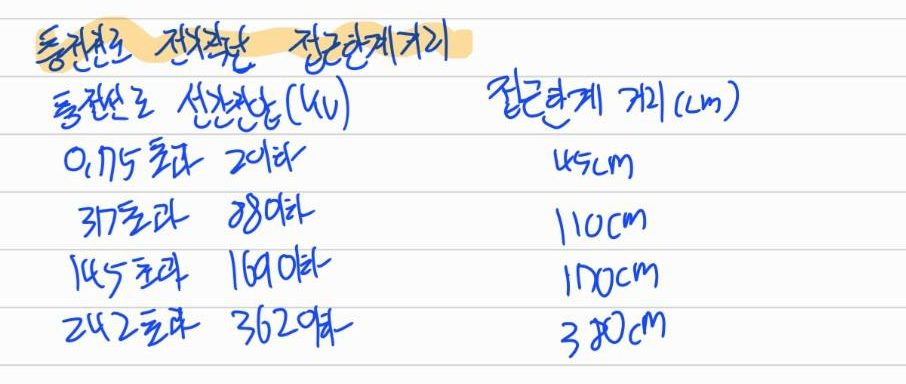 충전전로 전기작업 접근한계거리
충전전로 선간전압(kV) 접근한계 거리(cm)
0.75초과 2이하 45cm
37초과 88이하 110cm
145초과 169이하 170cm
242초과 362이하 380cm